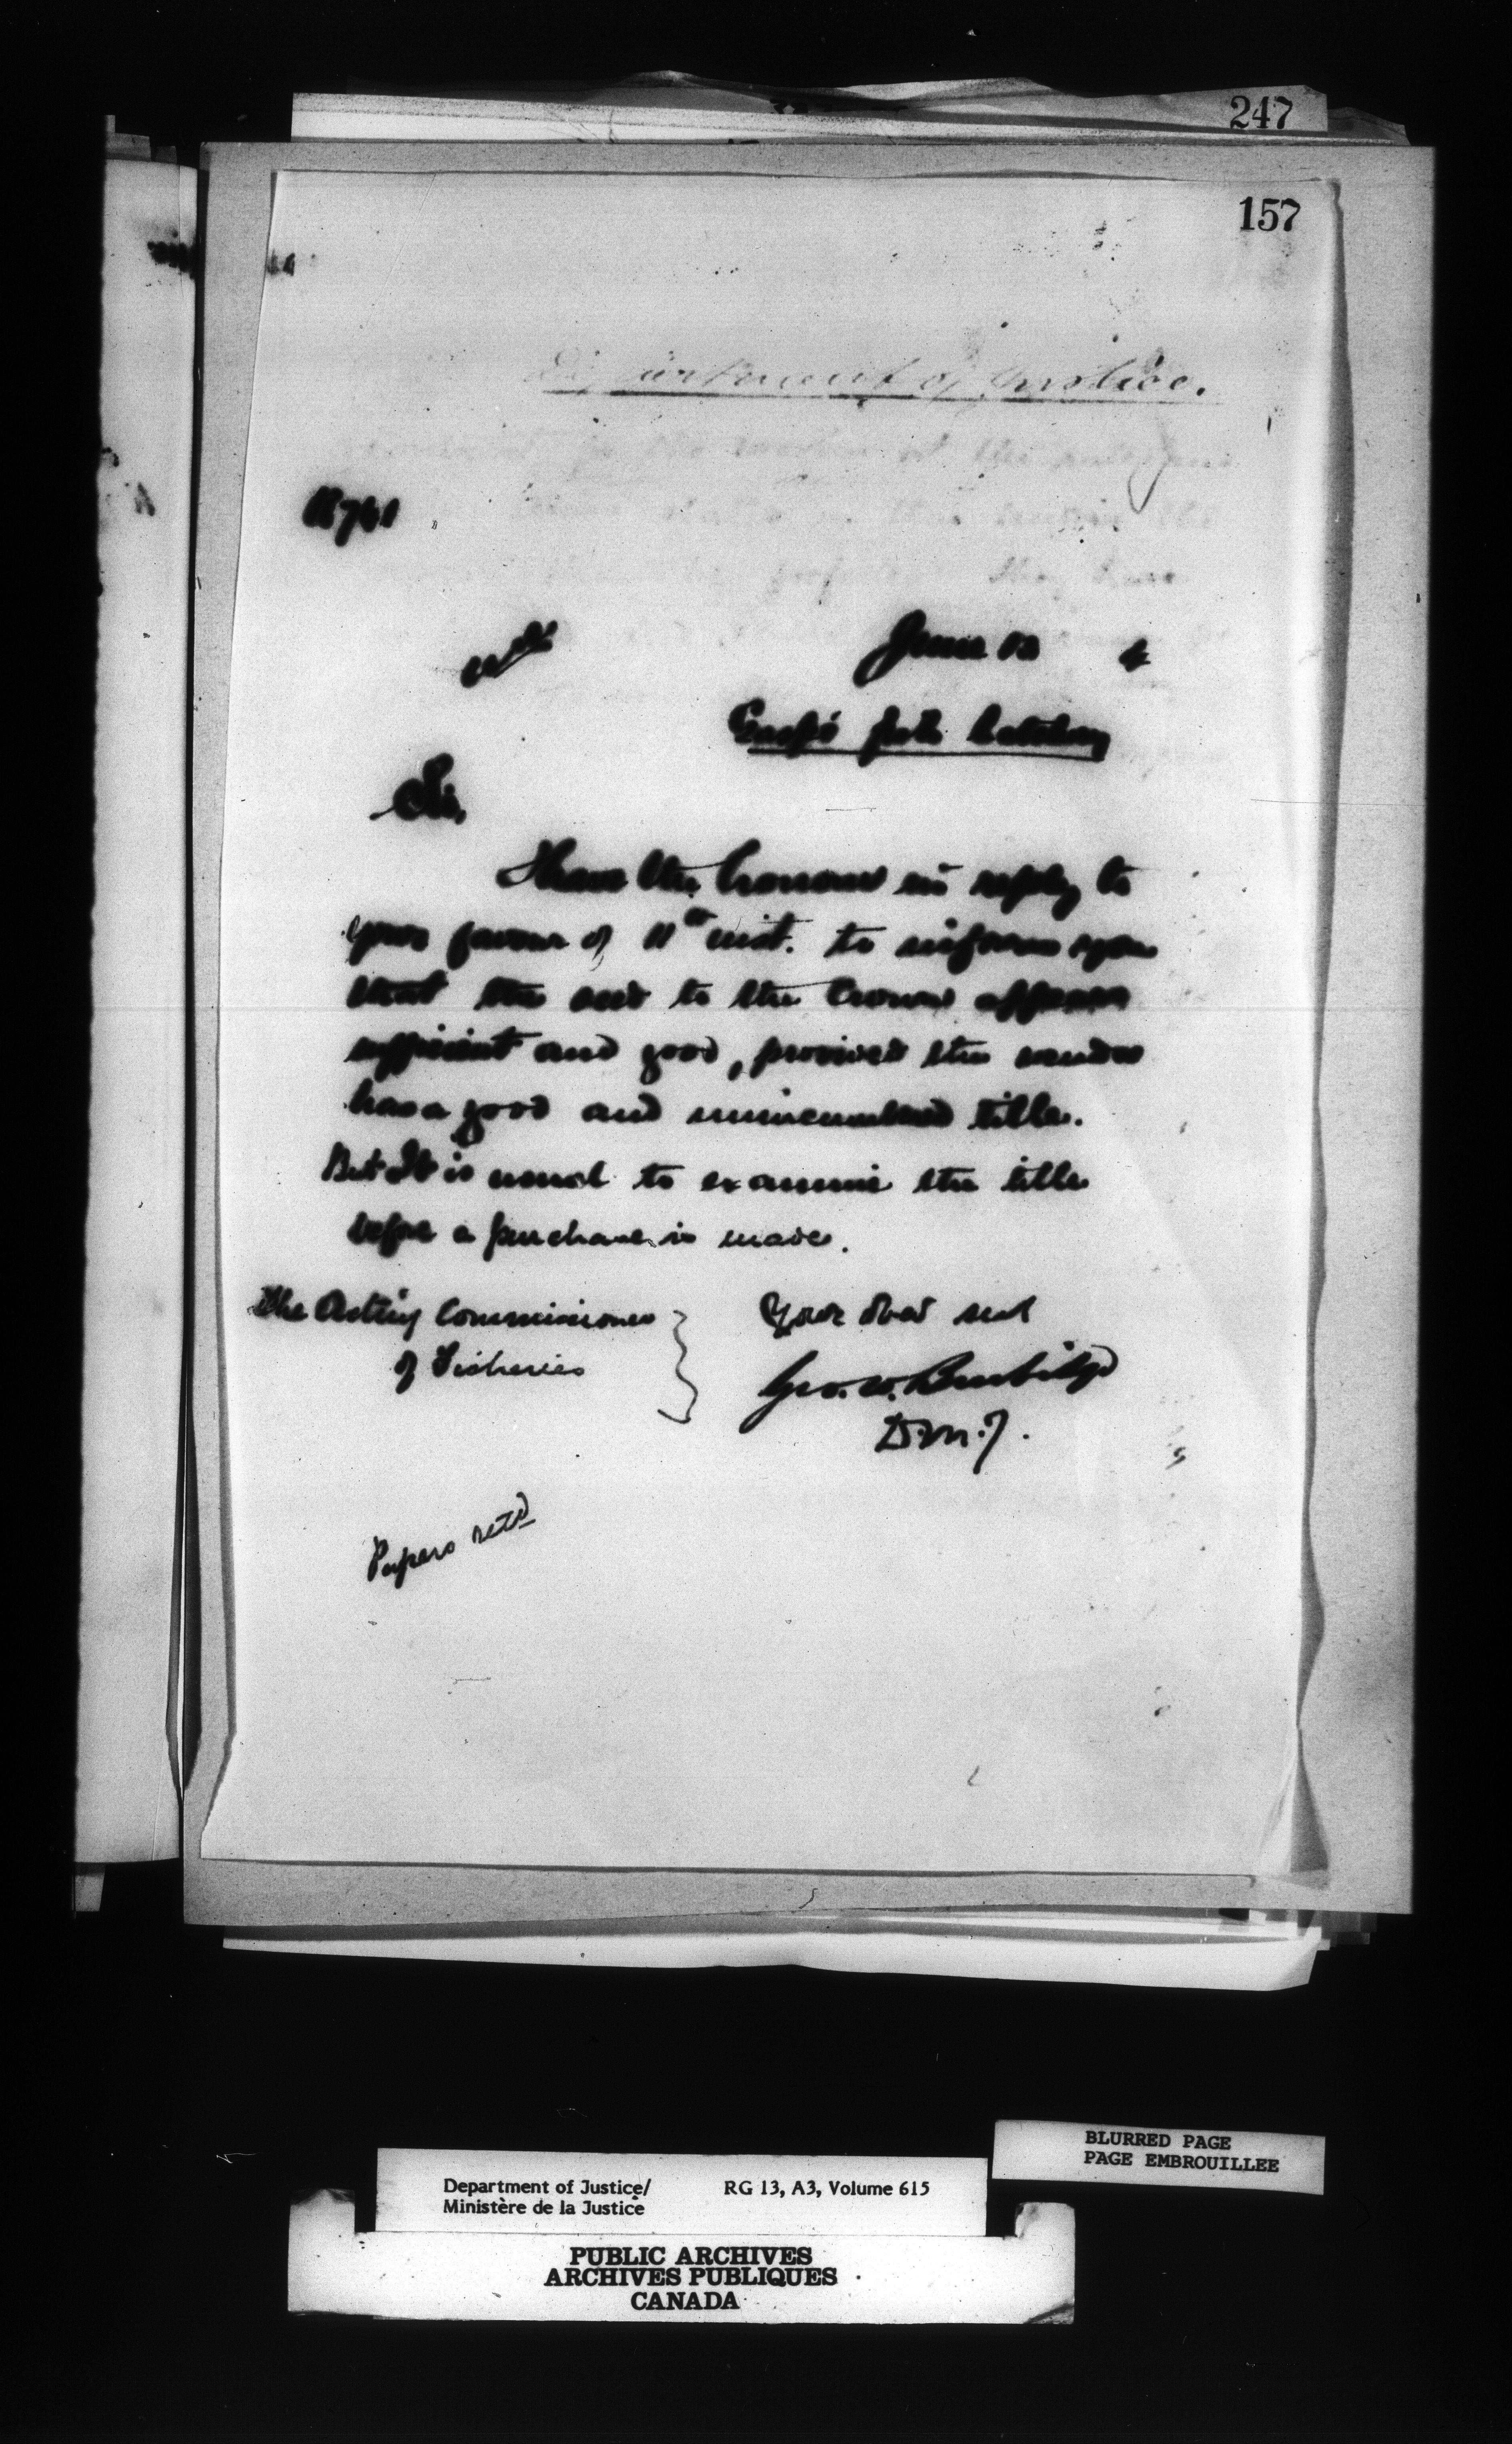 247
157
Department of Justice.
June 13 4
Gaspé fish hatchery
Sir,
I have the honour in reply to
your favour of 11th inst. to inform you
that the deed to the Crown appears
sufficient and good, provided the vendor
has a good and unincumbered title.
But It is usual to examine the title
before a purchase is made.
The Acting Commissioner
of Fisheries
Your obed servt
Geo. W. Burbidge
D.M.J.
Papers retd
BLURRED PAGE
PAGE EMBROUILLEE
Department of Justice/ RG 13, A3, Volume 615
Ministère de la Justice
PUBLIC ARCHIVES
ARCHIVES PUBLIQUES
CANADA